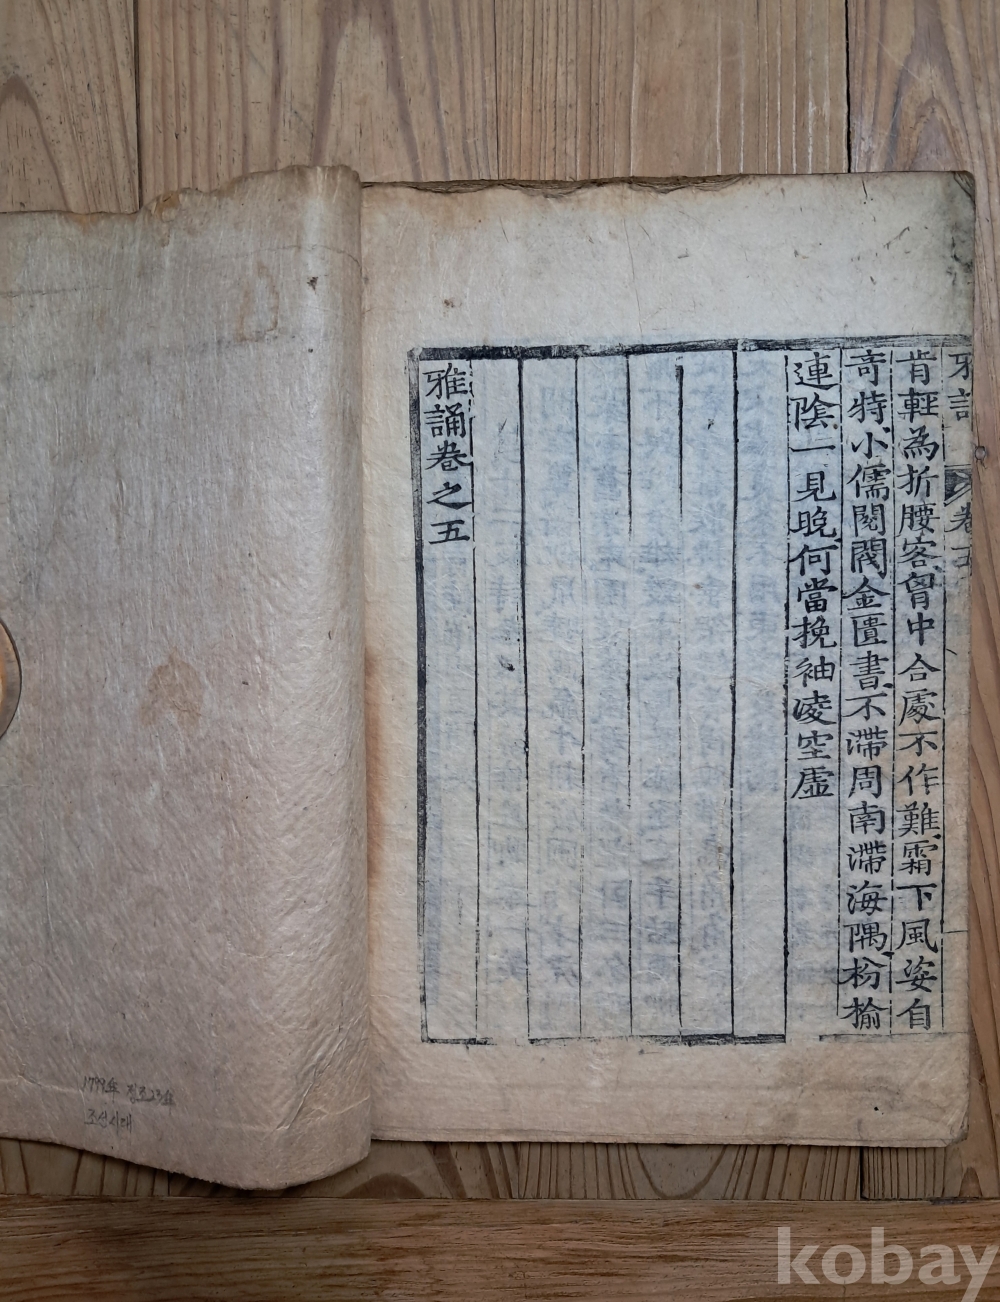 雅誦 卷五
肯輕為折腰客曾中合處不作難霜下風姿自
奇特小儒閱閣金匱書不滯周南滯海隅枌揄
連陰一見晚何當挽袖凌空虛
雅誦卷之五
1799年 정조23年
조선시대
kobay